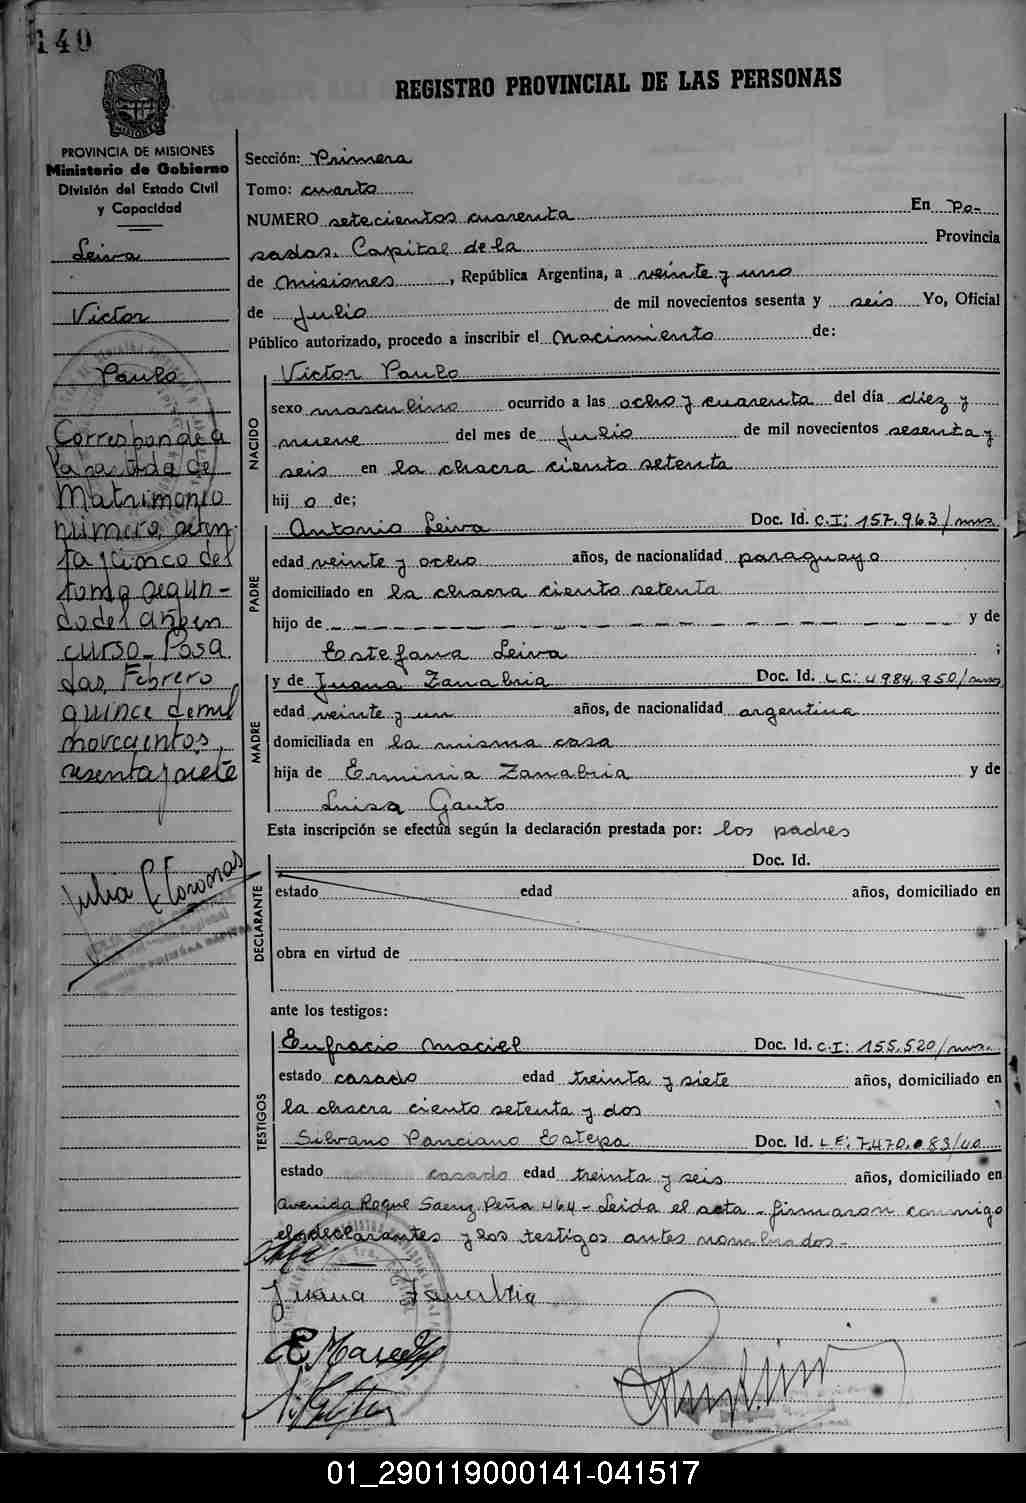 140
REGISTRO PROVINCIAL DE LAS PERSONAS
PROVINCIA DE MISIONES
Ministerio de Gobierno
División del Estado Civil
y Capacidad
Leiva
Victor
Paulo
Corresponde a
la partida de
Matrimonio
número
ta y cinco del
tomo segun-
do del año en
curso_ Posa
das, Febrero
quince de mil
novecientos
sesenta y siete
Julia
Sección: Primera
Tomo: cuarto
NUMERO setecientos cuarenta En Po-
sadas. Capital de la Provincia
de Misiones, República Argentina, a veinte y uno
de Julio de mil novecientos sesenta y seis Yo, Oficial
Público autorizado, procedo a inscribir el Nacimiento de:
NACIDO
Victor Paulo
sexo masculino ocurrido a las ocho y cuarenta del día diez y
nueve del mes de Julio de mil novecientos sesenta y
seis en la chacra ciento setenta
hij o de;
PADRE
Antonio Leiva Doc. Id. C.I: 157.963/mns.
edad veinte y ocho años, de nacionalidad paraguayo
domiciliado en la chacra ciento setenta
hijo de y de
Estefana Leiva ;
MADRE
y de Juana Zanabria Doc. Id. L.C: 4984.950/mns
edad veinte y un años, de nacionalidad argentina
domiciliada en la misma casa
hija de Erminia Zanabria y de
Luisa Gauto
Esta inscripción se efectúa según la declaración prestada por: los padres
DECLARANTE
Doc. Id.
estado edad años, domiciliado en
obra en virtud de
ante los testigos:
TESTIGOS
Eufracio Maciel Doc. Id. C.I: 155.520/mns.
estado casado edad treinta y siete años, domiciliado en
la chacra ciento setenta y dos
Silvano Ponciano Estepa Doc. Id. L E: 7.470.083/40
estado casado edad treinta y seis años, domiciliado en
avenida Roque Saenz Peña 464 - Leida el acta - firmaron conmigo
declarantes y los testigos antes nombrados.-
Juana Zanabria
01_290119000141-041517